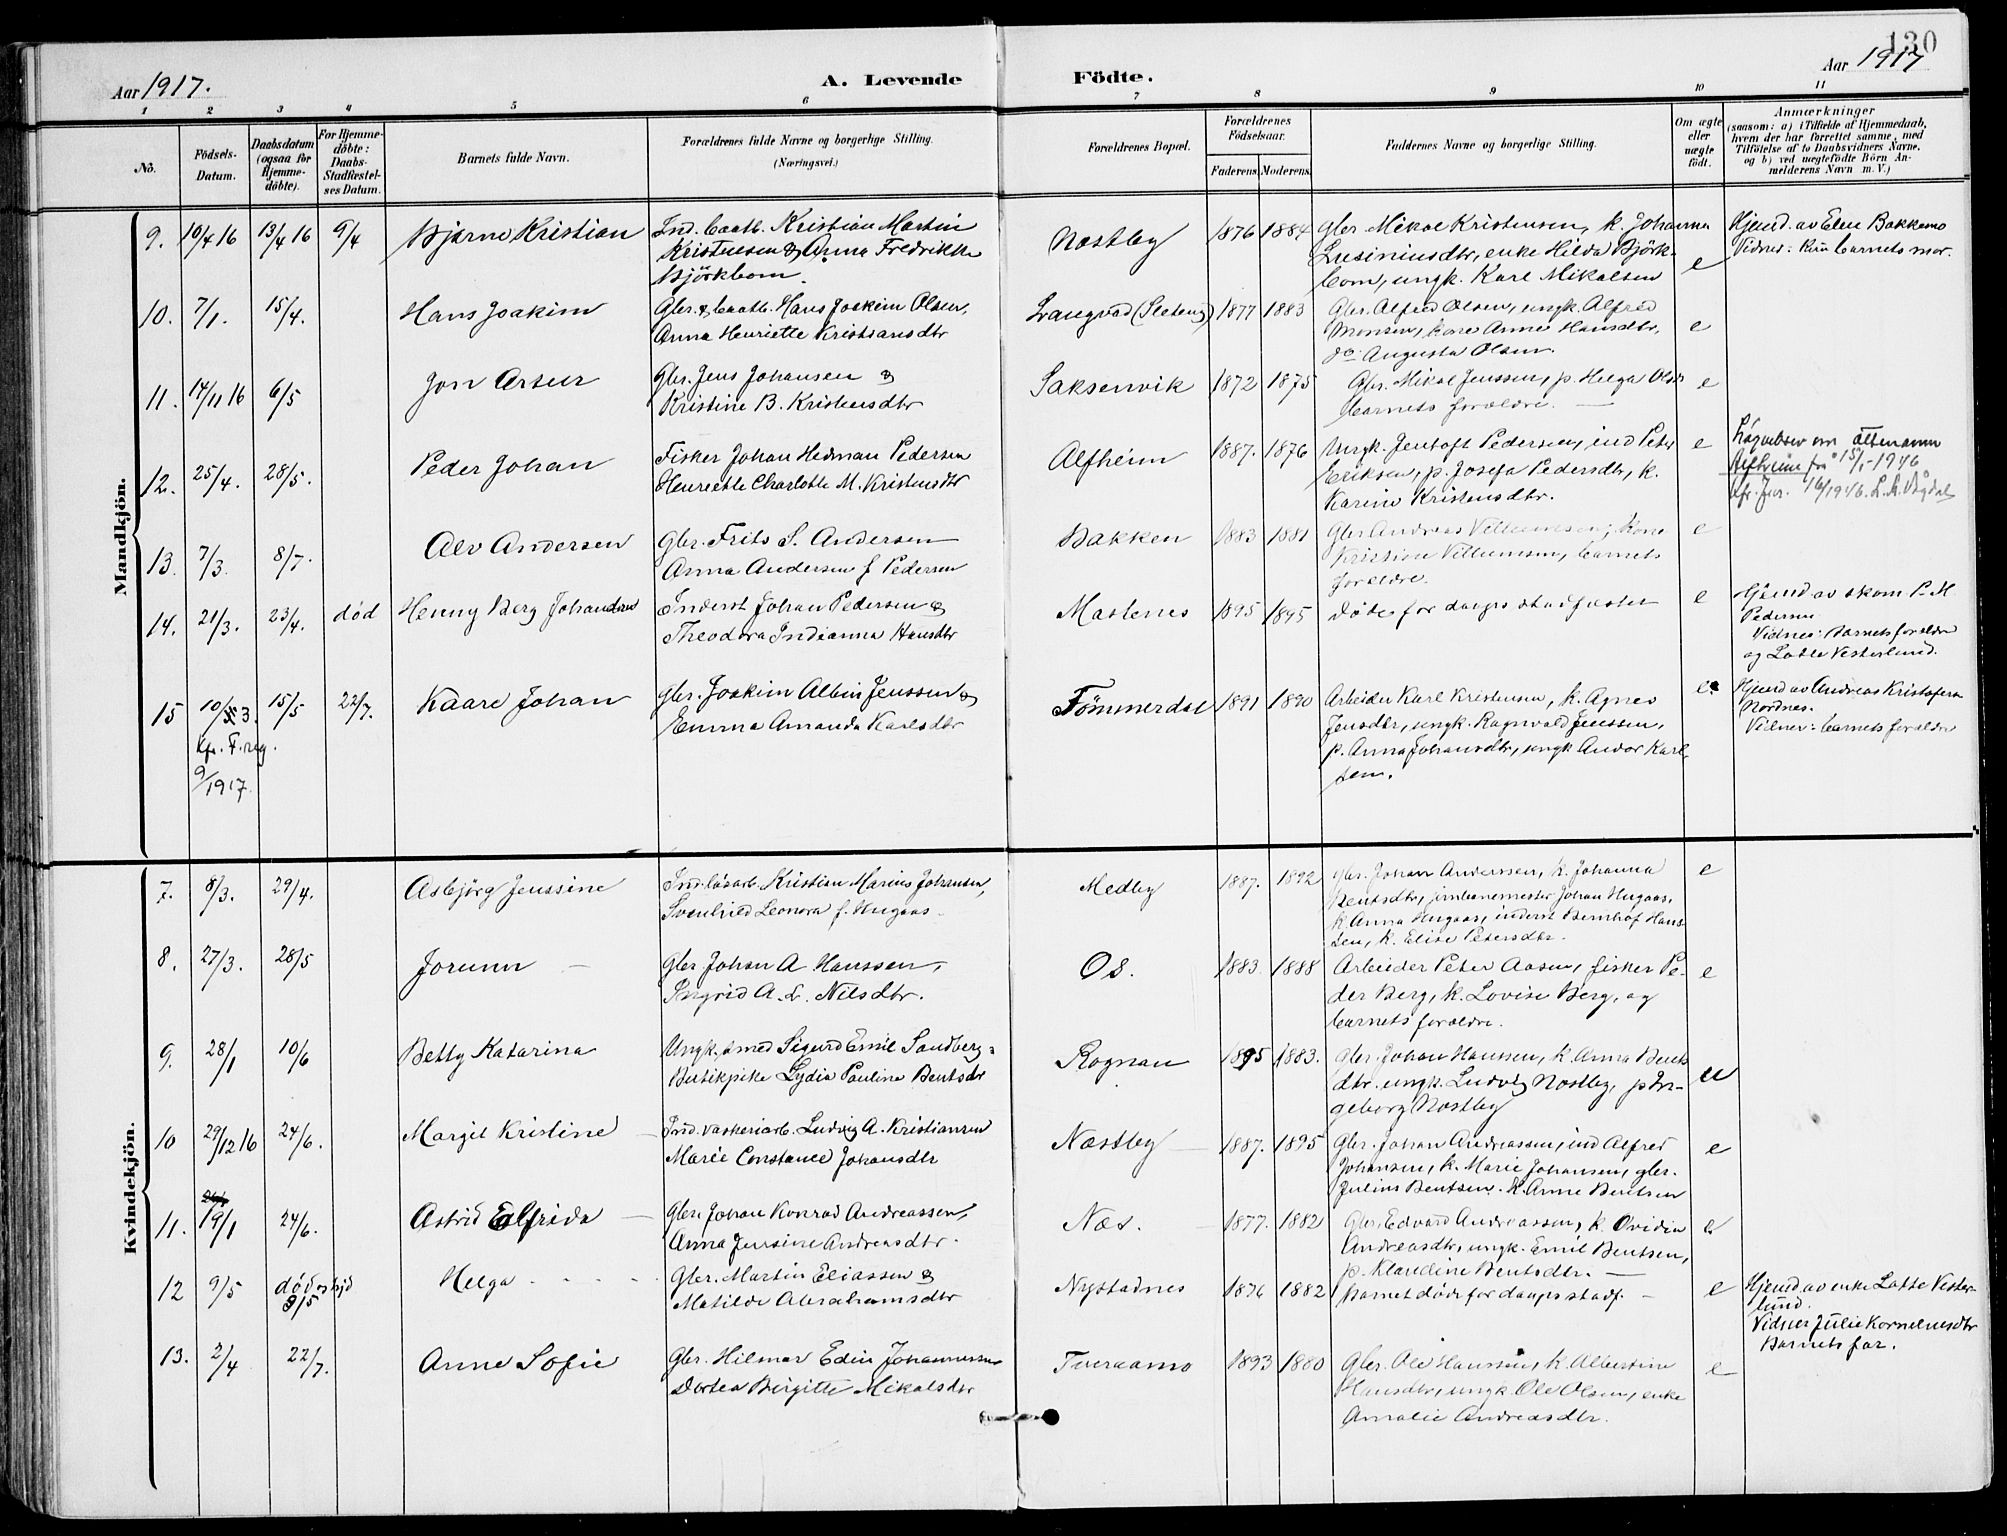 130
Aar 1917.
A. Levende
Födte.
Aar 1917
1 2 3 4 5 6 7 8 9 10 11
No.
Födsels-Datum.
Daabsdatum (ogsaa for Hjemme-döbte).
For Hjemme-döbte: Daabs-Stadfæstel-ses Datum.
Barnets fulde Navn.
Forældrenes fulde Navne og borgerlige Stilling.
(Næringsvei.)
Forældrenes Bopæl.
Forældrenes Födselsaar.
Faderens Moderens
Faddernes Navne og borgerlige Stilling.
Om ægte eller uægte födt.
Anmærkninger
(saasom: a) i Tilfælde af Hjemmedaab, hvem der har forrettet samme, med Tilföielse af to Daabsvidners Navne, og b) ved uægtefödte Börn Anmelderens Navn m. V.)
Mandkjön.
9. 10/4 16 13/4 16 9/4 Bjarne Kristian
Ind. baatb. Kristian Martin
Kristensen & Anna Fredrikke
Björkbom.
Næstby 1876 1884
Gbr. Mikal Kristensen, k. Johanna
Lusiniusdtr, enke Hilda Björk-
bom, ungk. Karl Mikalsen
e
Hjemd. av Eline Bakkemo
Vidner: Kun barnets mor.
10. 7/1. 15/4. Hans Joakim
Gbr. & baatb. Hans Joakim Olsen,
Anna Henriette Kristiansdtr
Langvad 1877 1883
Gbr. Alfred Olsen, ungk. Alfred
Monsen, kone Anne Hansdtr,
do. Augusta Olsen.
e
11. 14/11 16 6/5 Jon Artur
Gbr. Jens Johansen &
Kristine B. Kristensdtr
Saksenvik 1872 1875
Gbr. Mikal Jenssen, p. Helga Olsdtr
barnets forældre. —
e
12. 25/4. 28/5. Peder Johan
Fisker Johan Hedman Pedersen
Henriette Charlotte M. Kristensdtr
Alfheim 1887. 1876
Ungk. Jentoft Pedersen, ind Peter
Eriksen, p. Josefa Pedersdtr, k.
Karine Kristensdtr.
e
ættenavn
Alfheim fra 15/1-1946
13. 7/3. 8/7. Alv Andersen
Gbr. Frits S. Andersen
Anna Andersen f Pedersen
Bakken 1883 1881
Gbr Andreas Villumsen, kone
Kristine Villumsen, barnets
forældre.
e
14. 21/3. 23/4. död Henny Berg Johansen
Inderst Johan Pedersen &
Theodora Indianna Hansdtr
Mastenes 1895 1895
Döde för daaps stadfæstet
e
Hjemd av skom P. M
Pedersen
Vidner: Barnets forældre
og Lotte Vesterlund.
15 10/3. 15/5 22/7. Kaare Johan
Kfr. F. reg.
9/1917.
Gbr. Joakim Albin Jenssen &
Emma Amanda Karlsdtr
Tömmerdal 1891 1890
Arbeider Karl Kristensen, k. Agnes
Jensdtr, ungk. Ragnvald Jenssen,
p. Anna Johansdtr, ungk Andor Karl-
sen.
e
Hjemd av Andreas Kristofersen
Nordnes.
Vidner: barnets forældre
Kvindekjön.
7. 8/3. 29/4. Asbjörg Jenssine
Ind. lösarb. Kristian Marius Johansen,
Svanhild Leonora f. Hugaas.
Medby 1887. 1892
Gbr. Johan Anderssen, k. Johanna
Bentsdtr, jernbanemester Johan Hugaas,
k Anna Hugaas, inderst Bernhof Hans-
sen, k. Elise Petersdtr.
e
8. 27/3. 28/5 Jorunn —
Gbr Johan A Hanssen,
Ingrid A. L. Nilsdtr.
Os. 1883. 1888
Arbeider Peter Aasen, fisker Pe-
der Berg, k. Lovise Berg, og
barnets forældre.
e
9. 28/1 10/6 Betty Katarina
Ungk. smed Sigurd Emil Sandberg-
Butikpike Lydia Pauline Bentsdtr
Rognan 1895 1883.
Gbr. Johan Hanssen, k. Anna Bents
dtr. ungk. Ludvig Nostby, p In-
geborg Nostby
u
10 29/12 16 24/6. Margit Kristine —
Ind. vaskeriarb. Ludvig A. Kristiansen
Marie Constance Johansdtr
Næstby 1887. 1895
Gbr. Johan Andreassen, ind Alfred
Johansen, k. Marie Johansen, gbr.
Julius Bentsen. k. Anne Bentsen
e
11. 19/1 24/6. Astrid Elfrida —
Gbr. Johan Konrad Andreassen,
Anna Jensine Andreasdtr.
Næs. 1877. 1882
Gbr. Edvard Andreassen, k Ovidia
Andreasdtr, ungk. Emil Bentsen,
p. Klaudine Bentsdtr. —
e
12 9/5 död 9/5 Helga
Gbr. Martin Eliassen &
Matilde Abrahamsdtr
Nystadnes 1876 1882
Barnet döde för daaps stadf. —
e
Hjemd. av enke Lotte Vester-
lund.
Vidner Julie Korneliusdtr
Barnets far.
13. 2/4 22/7. Anne Sofie
Gbr. Hilmar Edin Johannessen
Dortea Birgitte Mikalsdtr
Tveraamo 1893 1880
Gbr. Ole Hanssen, k. Albertine
Hansdtr, ungk. Ole Olsen, enke
Amalie Andreasdtr.
e